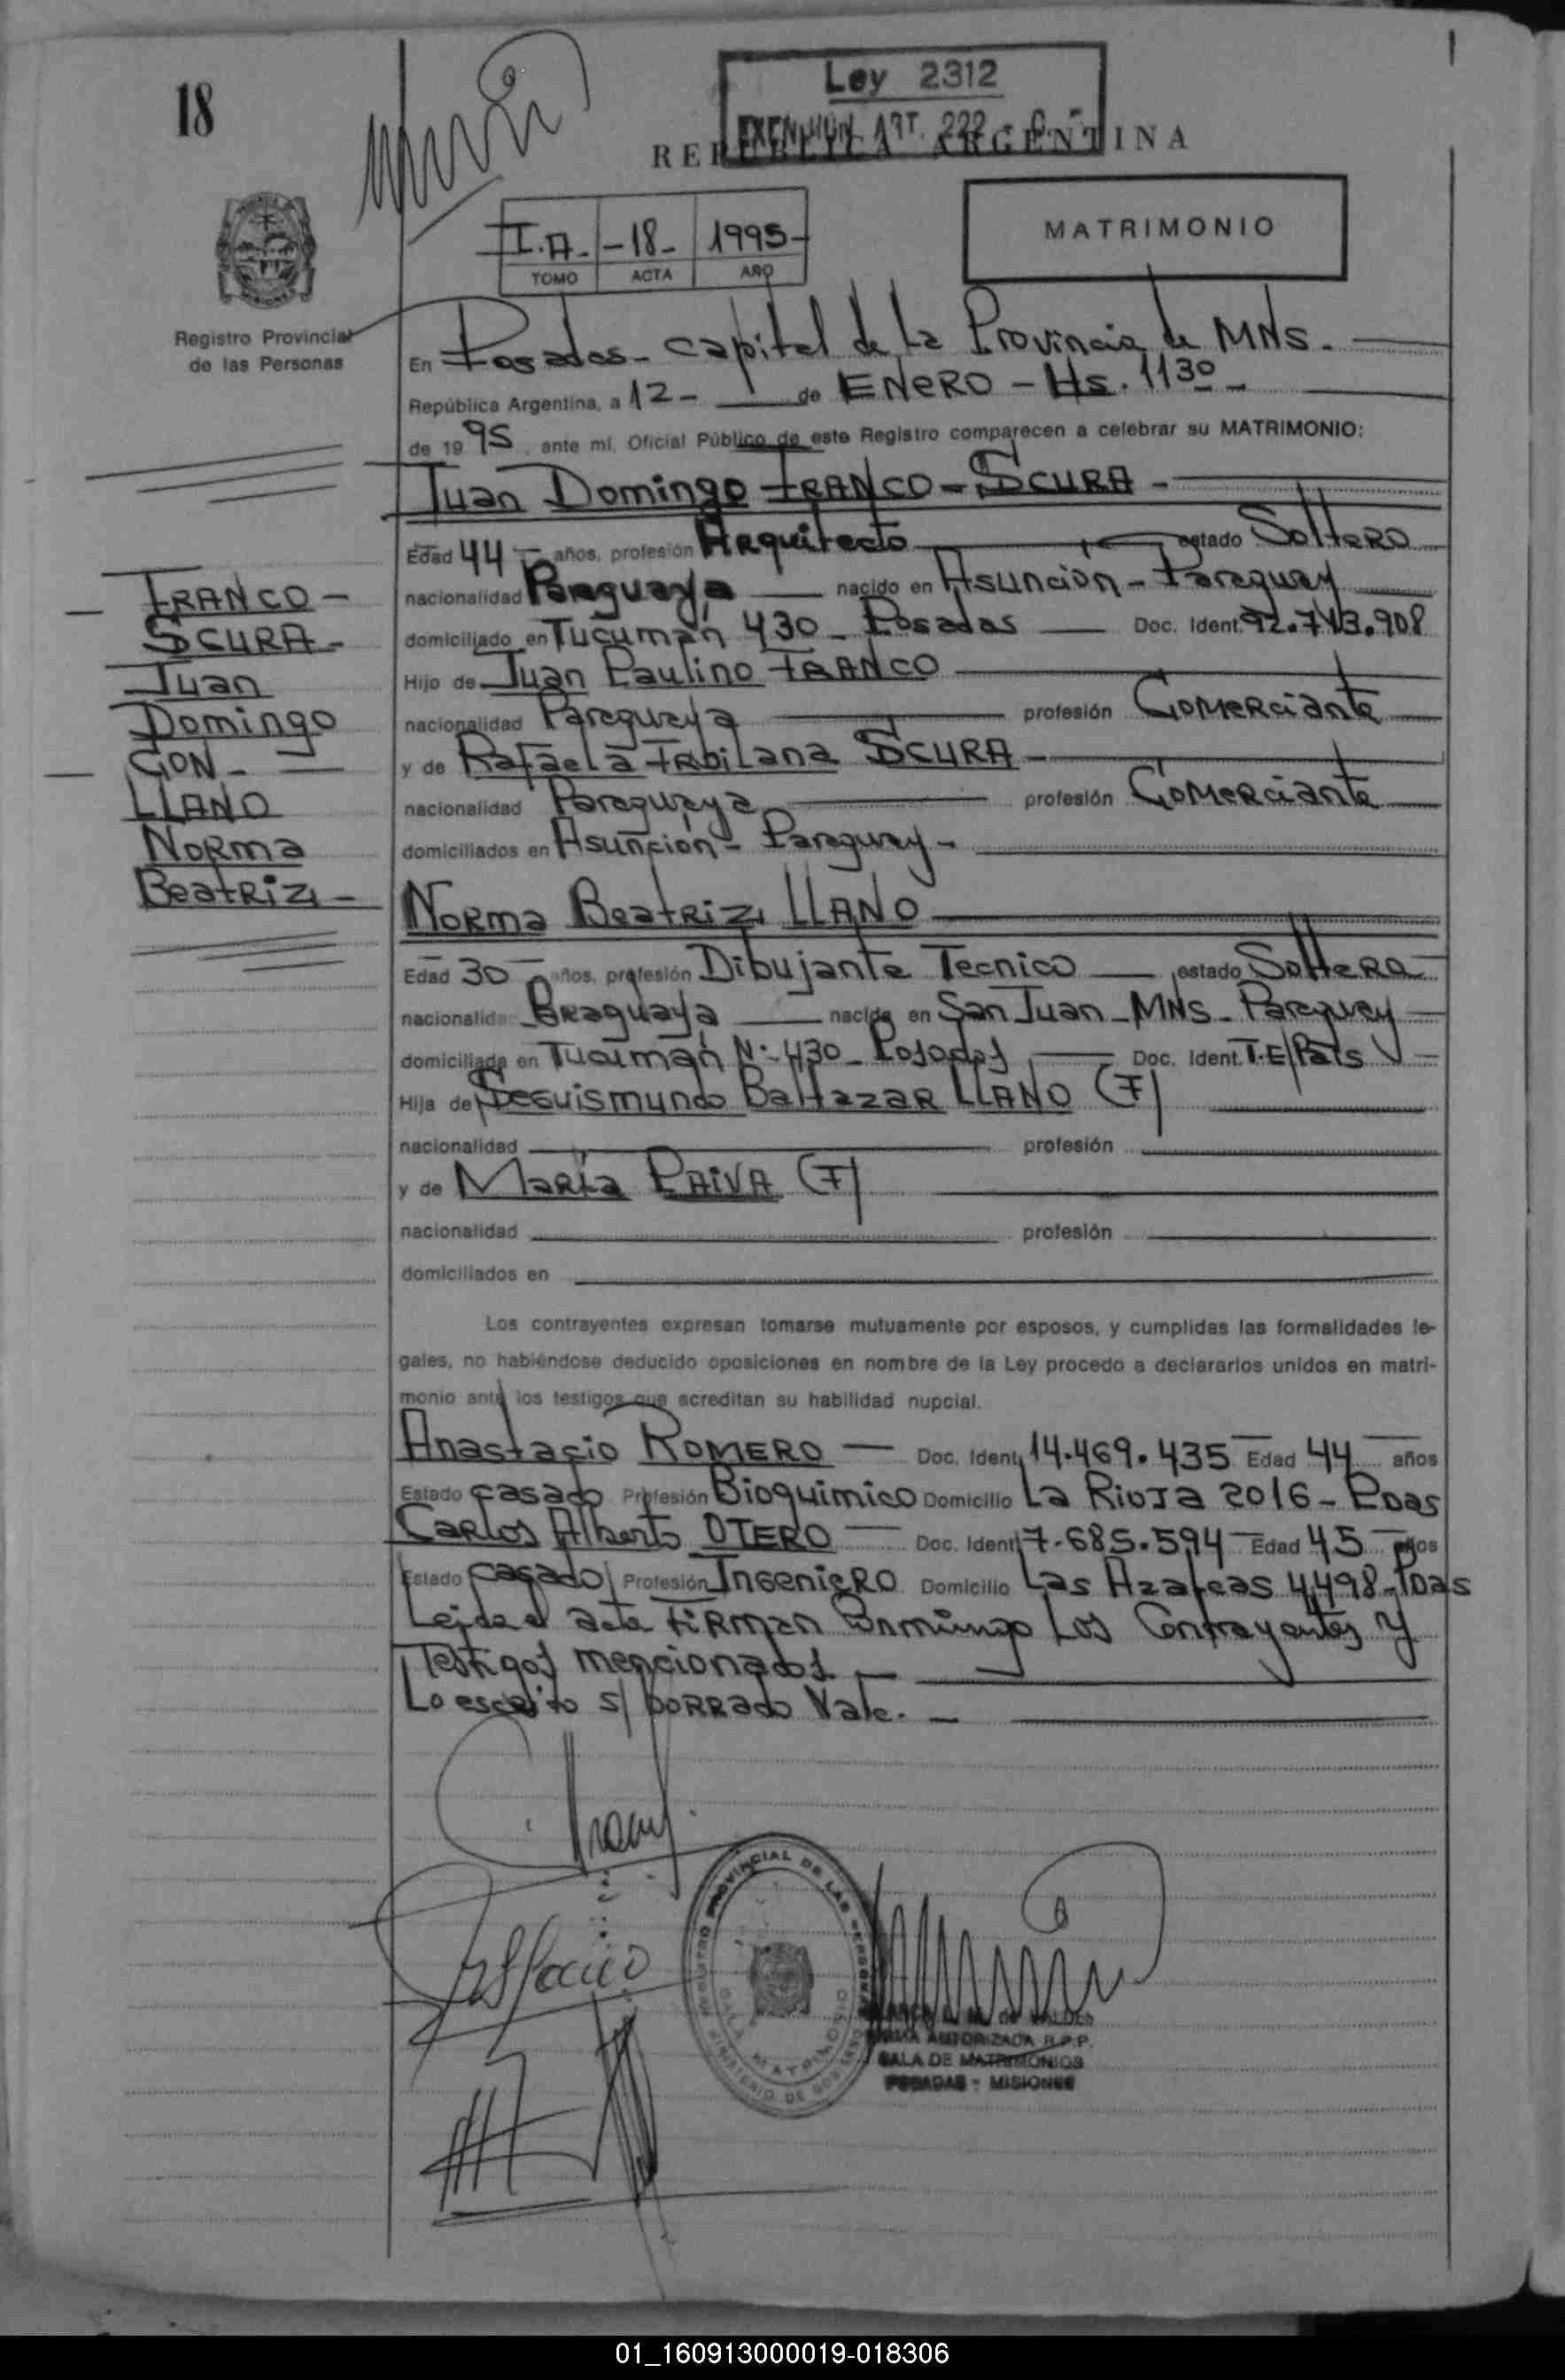 18
Ley 2312
EXENCION ART. 222
REPUBLICA ARGENTINA
I.A. -18- 1995-
TOMO ACTA AÑO
MATRIMONIO
MISIONES
Registro Provincial
de las Personas
En Posadas - Capital de la Provincia de MNS.
República Argentina, a 12- de ENERO - Hs. 1130-
de 1995, ante mí, Oficial Público de este Registro comparecen a celebrar su MATRIMONIO:
Juan Domingo FRANCO - SCURA -
Edad 44 años, profesión Arquitecto estado Soltero
nacionalidad Paraguaya nacido en Asuncion - Paraguay
domiciliado en Tucumán 430 - Posadas Doc. Ident. 92.743.908
Hijo de Juan Paulino FRANCO
nacionalidad Paraguaya profesión Comerciante
y de Rafaela SCURA
nacionalidad Paraguaya profesión Comerciante
domiciliados en Asunción - Paraguay -
FRANCO -
SCURA -
Juan
Domingo
CON -
LLANO
Norma
Beatriz -
Norma Beatriz LLANO
Edad 30 años, profesión Dibujante Tecnico estado Soltera
nacionalidad Paraguaya nacida en San Juan - MNS - Paraguay
domiciliada en Tucumán N° 430 - Posadas Doc. Ident. T.E/País
Hija de Seguismundo Baltazar LLANO (F)
nacionalidad profesión
y de María PAIVA (F)
nacionalidad profesión
domiciliados en
Los contrayentes expresan tomarse mutuamente por esposos, y cumplidas las formalidades le-
gales, no habiéndose deducido oposiciones en nombre de la Ley procedo a declararlos unidos en matri-
monio ante los testigos que acreditan su habilidad nupcial.
Anastacio ROMERO Doc. Ident. 14.469.435 Edad 44 años
Estado casado Profesión Bioquimico Domicilio La Rioja 2016 - Pdas
Carlos Alberto OTERO Doc. Ident. 7.685.594 Edad 45 años
Estado casado Profesión Ingeniero Domicilio Las Azaleas 4498 - Pdas
Leida el acta firman conmigo los Contrayentes y
Testigos mencionados
Lo escrito s/ borrado Vale. -
REGISTRO PROVINCIAL DE LAS PERSONAS
SALA MATRIMONIO
MINISTERIO DE GOBIERNO
DE VALDES
FIRMA AUTORIZADA R.P.P.
SALA DE MATRIMONIOS
POSADAS - MISIONES
01_160913000019-018306